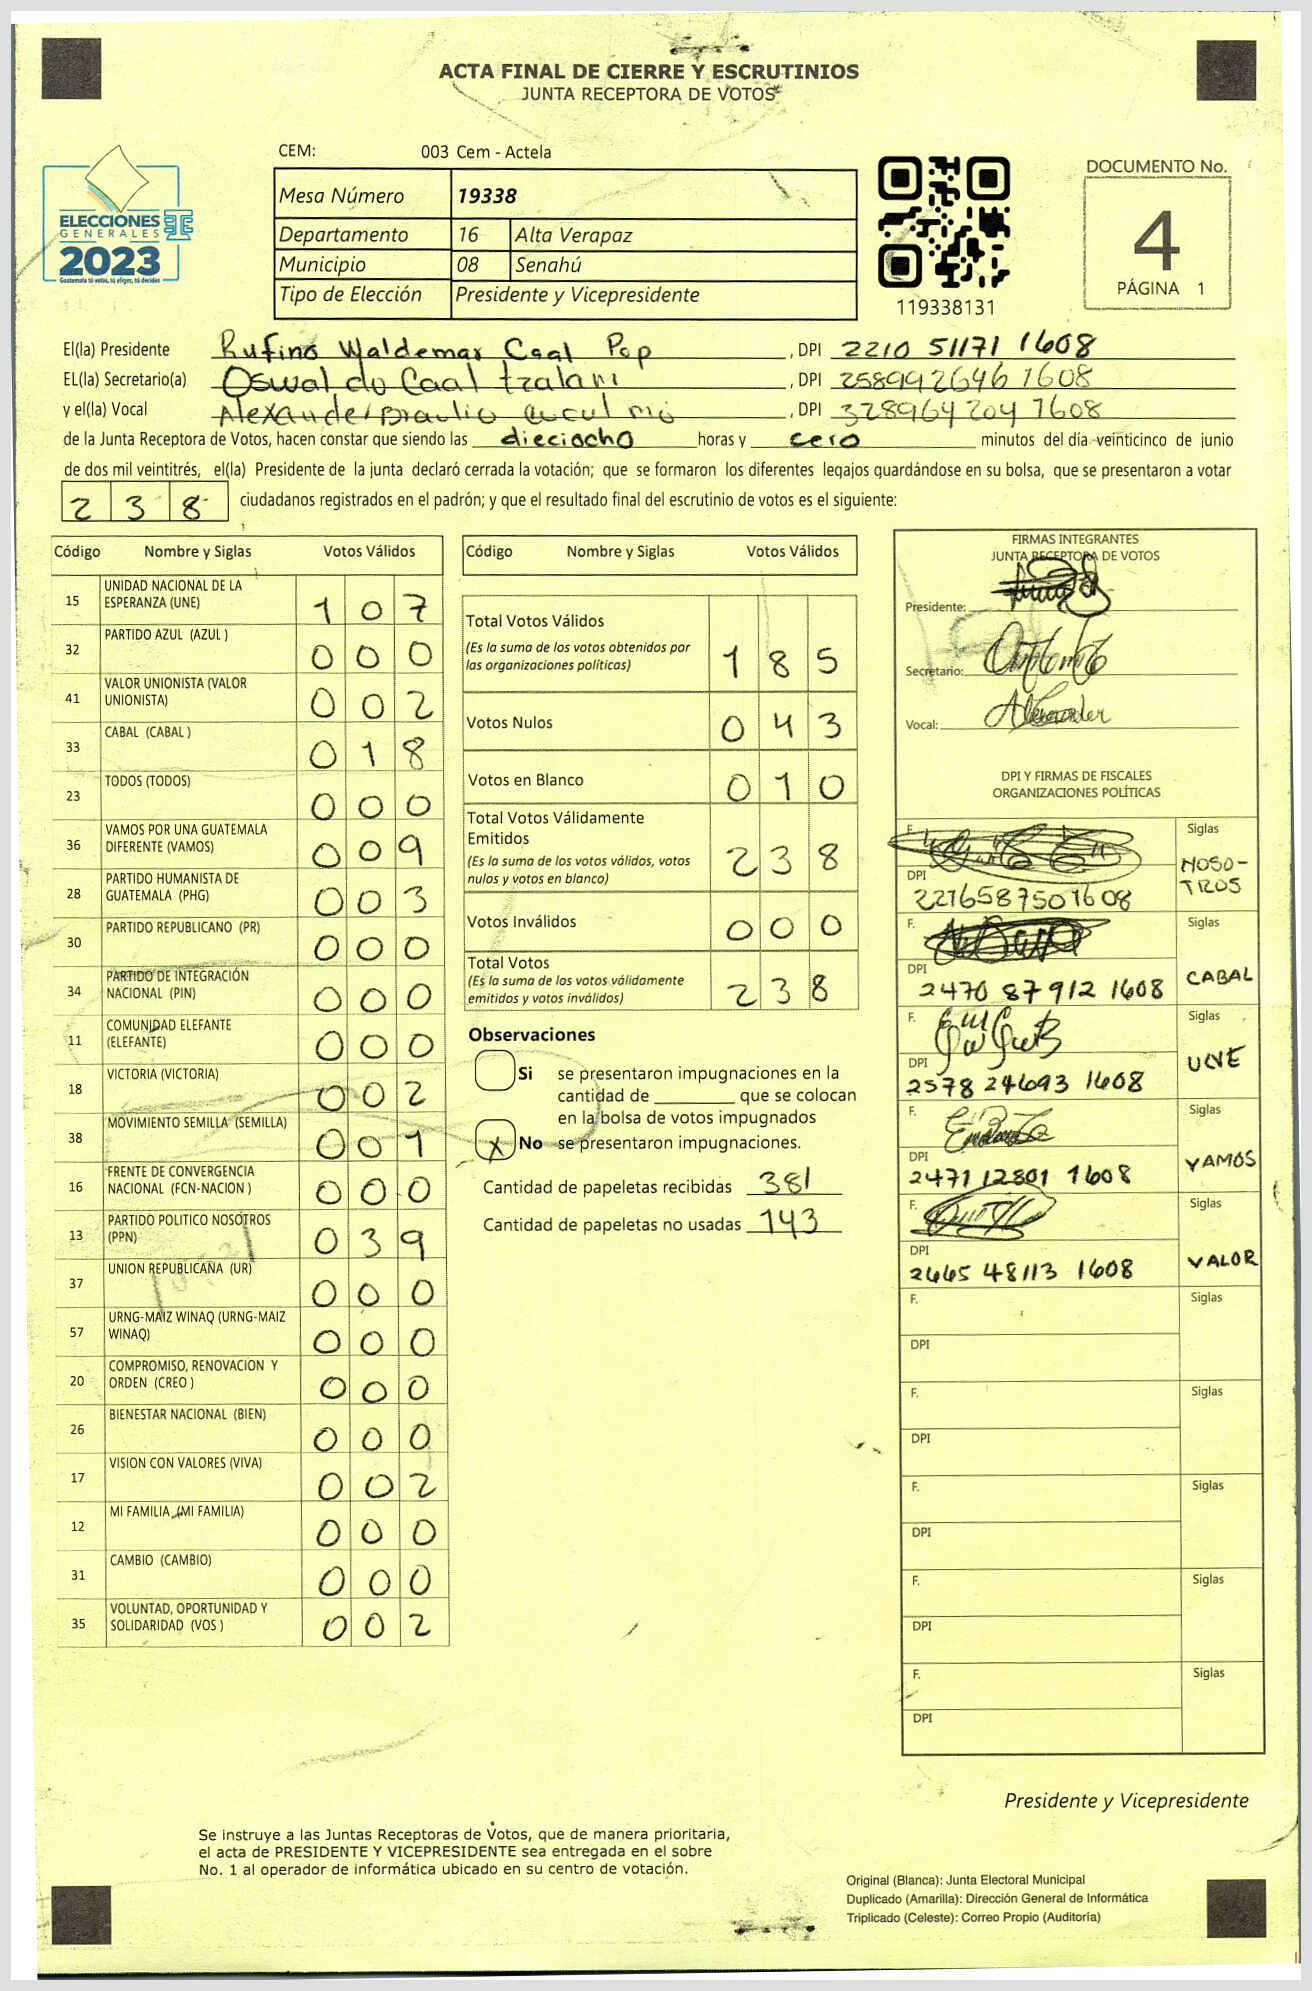 ACTA FINAL DE CIERRE Y ESCRUTINIOS
JUNTA RECEPTORA DE VOTOS
CEM: 003 Cem - Actela
ELECCIONES
GENERALES
2023
Guatemala tú votas, tú eliges, tú decides
Mesa Número 19338
Departamento 16 Alta Verapaz
Municipio 08 Senahú
Tipo de Elección Presidente y Vicepresidente
119338131
DOCUMENTO No.
4
PÁGINA 1
El(la) Presidente Rufino Waldemar Caal Pop, DPI 2210 51171 1608
EL(la) Secretario(a) Oswaldo Caal tzalam, DPI 258992646 1608
y el(la) Vocal Alexander Braulio cucul mó, DPI 328964204 1608
de la Junta Receptora de Votos, hacen constar que siendo las dieciocho horas y cero minutos del día veinticinco de junio
de dos mil veintitrés, el(la) Presidente de la junta declaró cerrada la votación; que se formaron los diferentes legajos guardándose en su bolsa, que se presentaron a votar
238 ciudadanos registrados en el padrón; y que el resultado final del escrutinio de votos es el siguiente:
Código Nombre y Siglas Votos Válidos
15 UNIDAD NACIONAL DE LA ESPERANZA (UNE) 107
32 PARTIDO AZUL (AZUL ) 000
41 VALOR UNIONISTA (VALOR UNIONISTA) 002
33 CABAL (CABAL ) 018
23 TODOS (TODOS) 000
36 VAMOS POR UNA GUATEMALA DIFERENTE (VAMOS) 009
28 PARTIDO HUMANISTA DE GUATEMALA (PHG) 003
30 PARTIDO REPUBLICANO (PR) 000
34 PARTIDO DE INTEGRACIÓN NACIONAL (PIN) 000
11 COMUNIDAD ELEFANTE (ELEFANTE) 000
18 VICTORIA (VICTORIA) 002
38 MOVIMIENTO SEMILLA (SEMILLA) 001
16 FRENTE DE CONVERGENCIA NACIONAL (FCN-NACION ) 000
13 PARTIDO POLITICO NOSOTROS (PPN) 039
37 UNION REPUBLICANA (UR) 000
57 URNG-MAIZ WINAQ (URNG-MAIZ WINAQ) 000
20 COMPROMISO, RENOVACION Y ORDEN (CREO ) 000
26 BIENESTAR NACIONAL (BIEN) 000
17 VISION CON VALORES (VIVA) 002
12 MI FAMILIA (MI FAMILIA) 000
31 CAMBIO (CAMBIO) 000
35 VOLUNTAD, OPORTUNIDAD Y SOLIDARIDAD (VOS ) 002
Código Nombre y Siglas Votos Válidos
Total Votos Válidos
(Es la suma de los votos obtenidos por
las organizaciones políticas) 185
Votos Nulos 043
Votos en Blanco 010
Total Votos Válidamente
Emitidos
(Es la suma de los votos válidos, votos
nulos y votos en blanco) 238
Votos Inválidos 000
Total Votos
(Es la suma de los votos válidamente
emitidos y votos inválidos) 238
Observaciones
Si se presentaron impugnaciones en la
cantidad de ________ que se colocan
en la bolsa de votos impugnados
X No se presentaron impugnaciones.
Cantidad de papeletas recibidas 381
Cantidad de papeletas no usadas 143
FIRMAS INTEGRANTES
JUNTA RECEPTORA DE VOTOS
Presidente:
Secretario:
Vocal: Alexander
DPI Y FIRMAS DE FISCALES
ORGANIZACIONES POLÍTICAS
F. Siglas
NOSO-
TROS
DPI
221658750 1608
F. Siglas
CABAL
DPI
2470 87912 1608
F. Siglas
UNE
DPI
2578 24693 1608
F. Siglas
VAMOS
DPI
2471 12801 1608
F. Siglas
VALOR
DPI
2665 48113 1608
F. Siglas
DPI
F. Siglas
DPI
F. Siglas
DPI
F. Siglas
DPI
F. Siglas
DPI
Presidente y Vicepresidente
Se instruye a las Juntas Receptoras de Votos, que de manera prioritaria,
el acta de PRESIDENTE Y VICEPRESIDENTE sea entregada en el sobre
No. 1 al operador de informática ubicado en su centro de votación.
Original (Blanca): Junta Electoral Municipal
Duplicado (Amarilla): Dirección General de Informática
Triplicado (Celeste): Correo Propio (Auditoría)